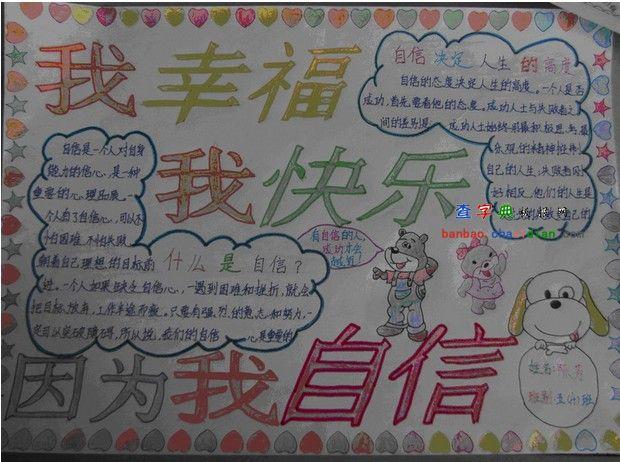 我幸福
自信决定人生的高度
自信的态度决定人生的高度。一个人是否
成功,首先要看他的态度。成功人士与失败者之
间的差别是:成功人士始终用最积极思
乐观的精神
自己的人生,失败者刚
好相反,他们的人生是
自己的
我快乐
自信是一个人对自身
能力的信心,是一种
重要的心理品展。一
个人有了自信心,可以不
怕困难,不怕失败
朝着自己理想的目标前
什么是自信?
进。一个人如果缺乏自信心,一遇到困难和挫折,就会
把目标放弃,工作半途而废。只要有强烈的意志和努力,一
定可以突破障碍,所以说,我们的自信心是重要的
有自信的人,
成功才会
查字典
banbao.chazidian.com
因为我自信
姓名:
班别:五(4)班